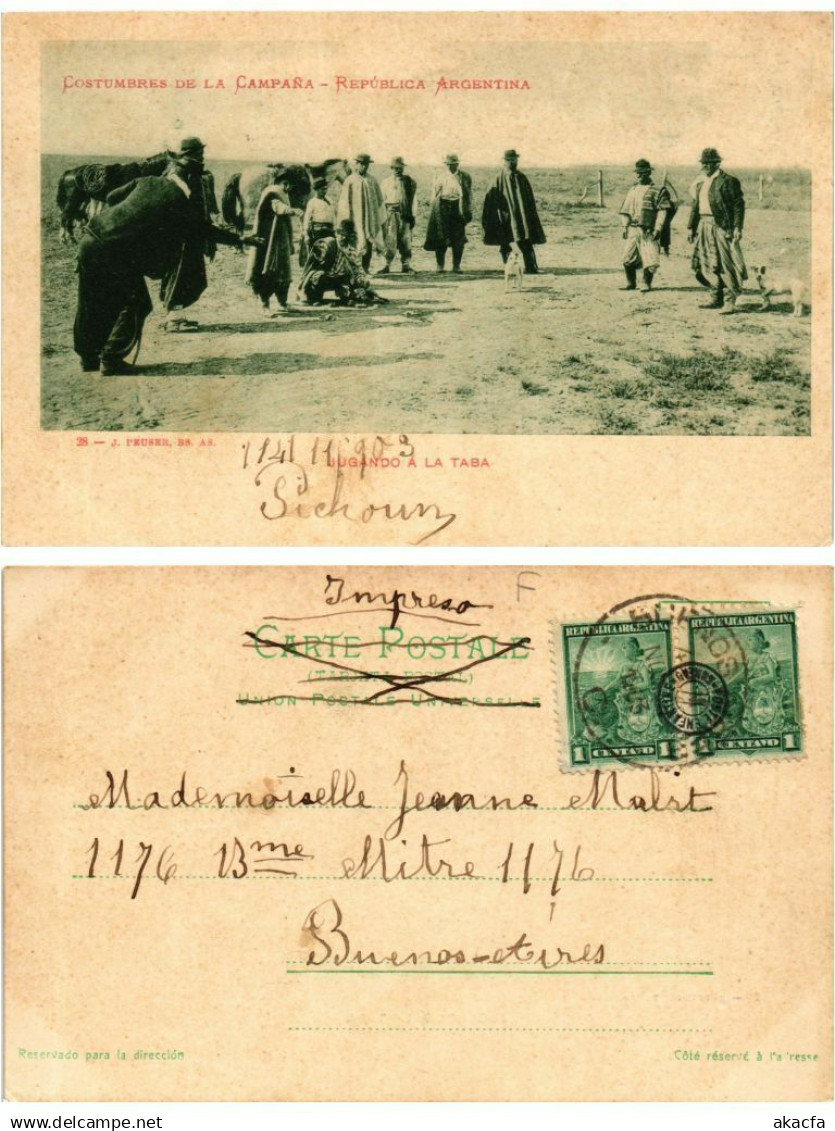 COSTUMBRES DE LA CAMPAÑA – REPÚBLICA ARGENTINA
28 — J. PEUSER, BS. AS.
JUGANDO Á LA TABA
Pichoun
Impreso F
CARTE POSTALE
(TARJETA POSTAL)
UNION POSTALE UNIVERSELLE
REPUBLICA ARGENTINA REPUBLICA ARGENTINA
1 CENTAVO 1 1 CENTAVO 1
Mademoiselle Jeanne
1176 Bme Mitre 1176
Buenos-Aires
Reservado para la dirección
Côté réservé à
akacfa